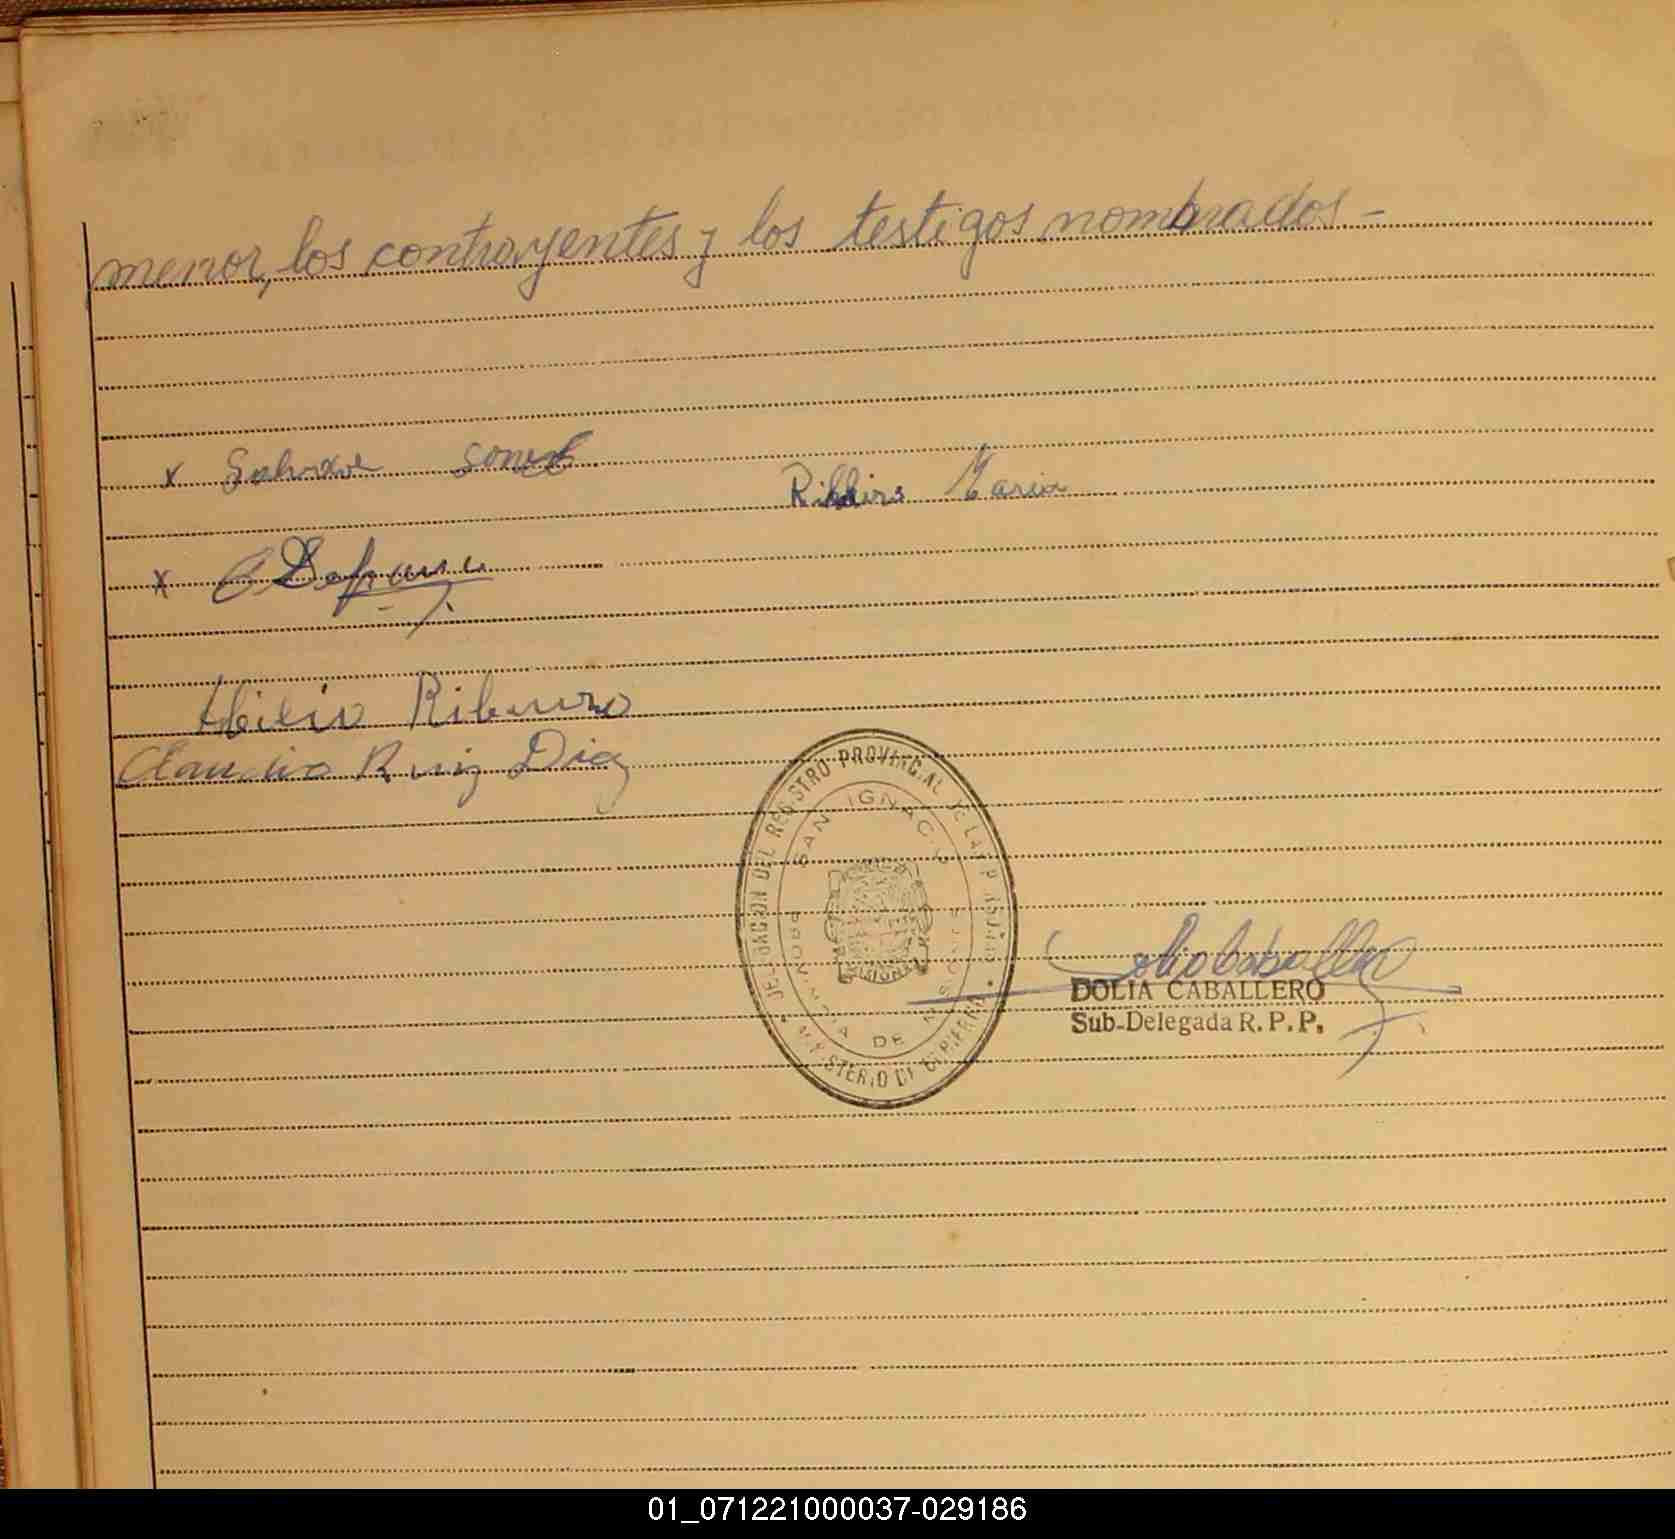 menor, los contrayentes y los testigos nombrados -
x
Maria
x
Ribeiro
Claudio Ruiz Diaz
DELEGACION DEL REGISTRO PROVINCIAL DE LAS PERSONAS
SAN IGNACIO
PROVINCIA DE MISIONES
MINISTERIO DE GOBIERNO
Dolia Caballero
DOLIA CABALLERO
Sub-Delegada R. P. P.
01_071221000037-029186